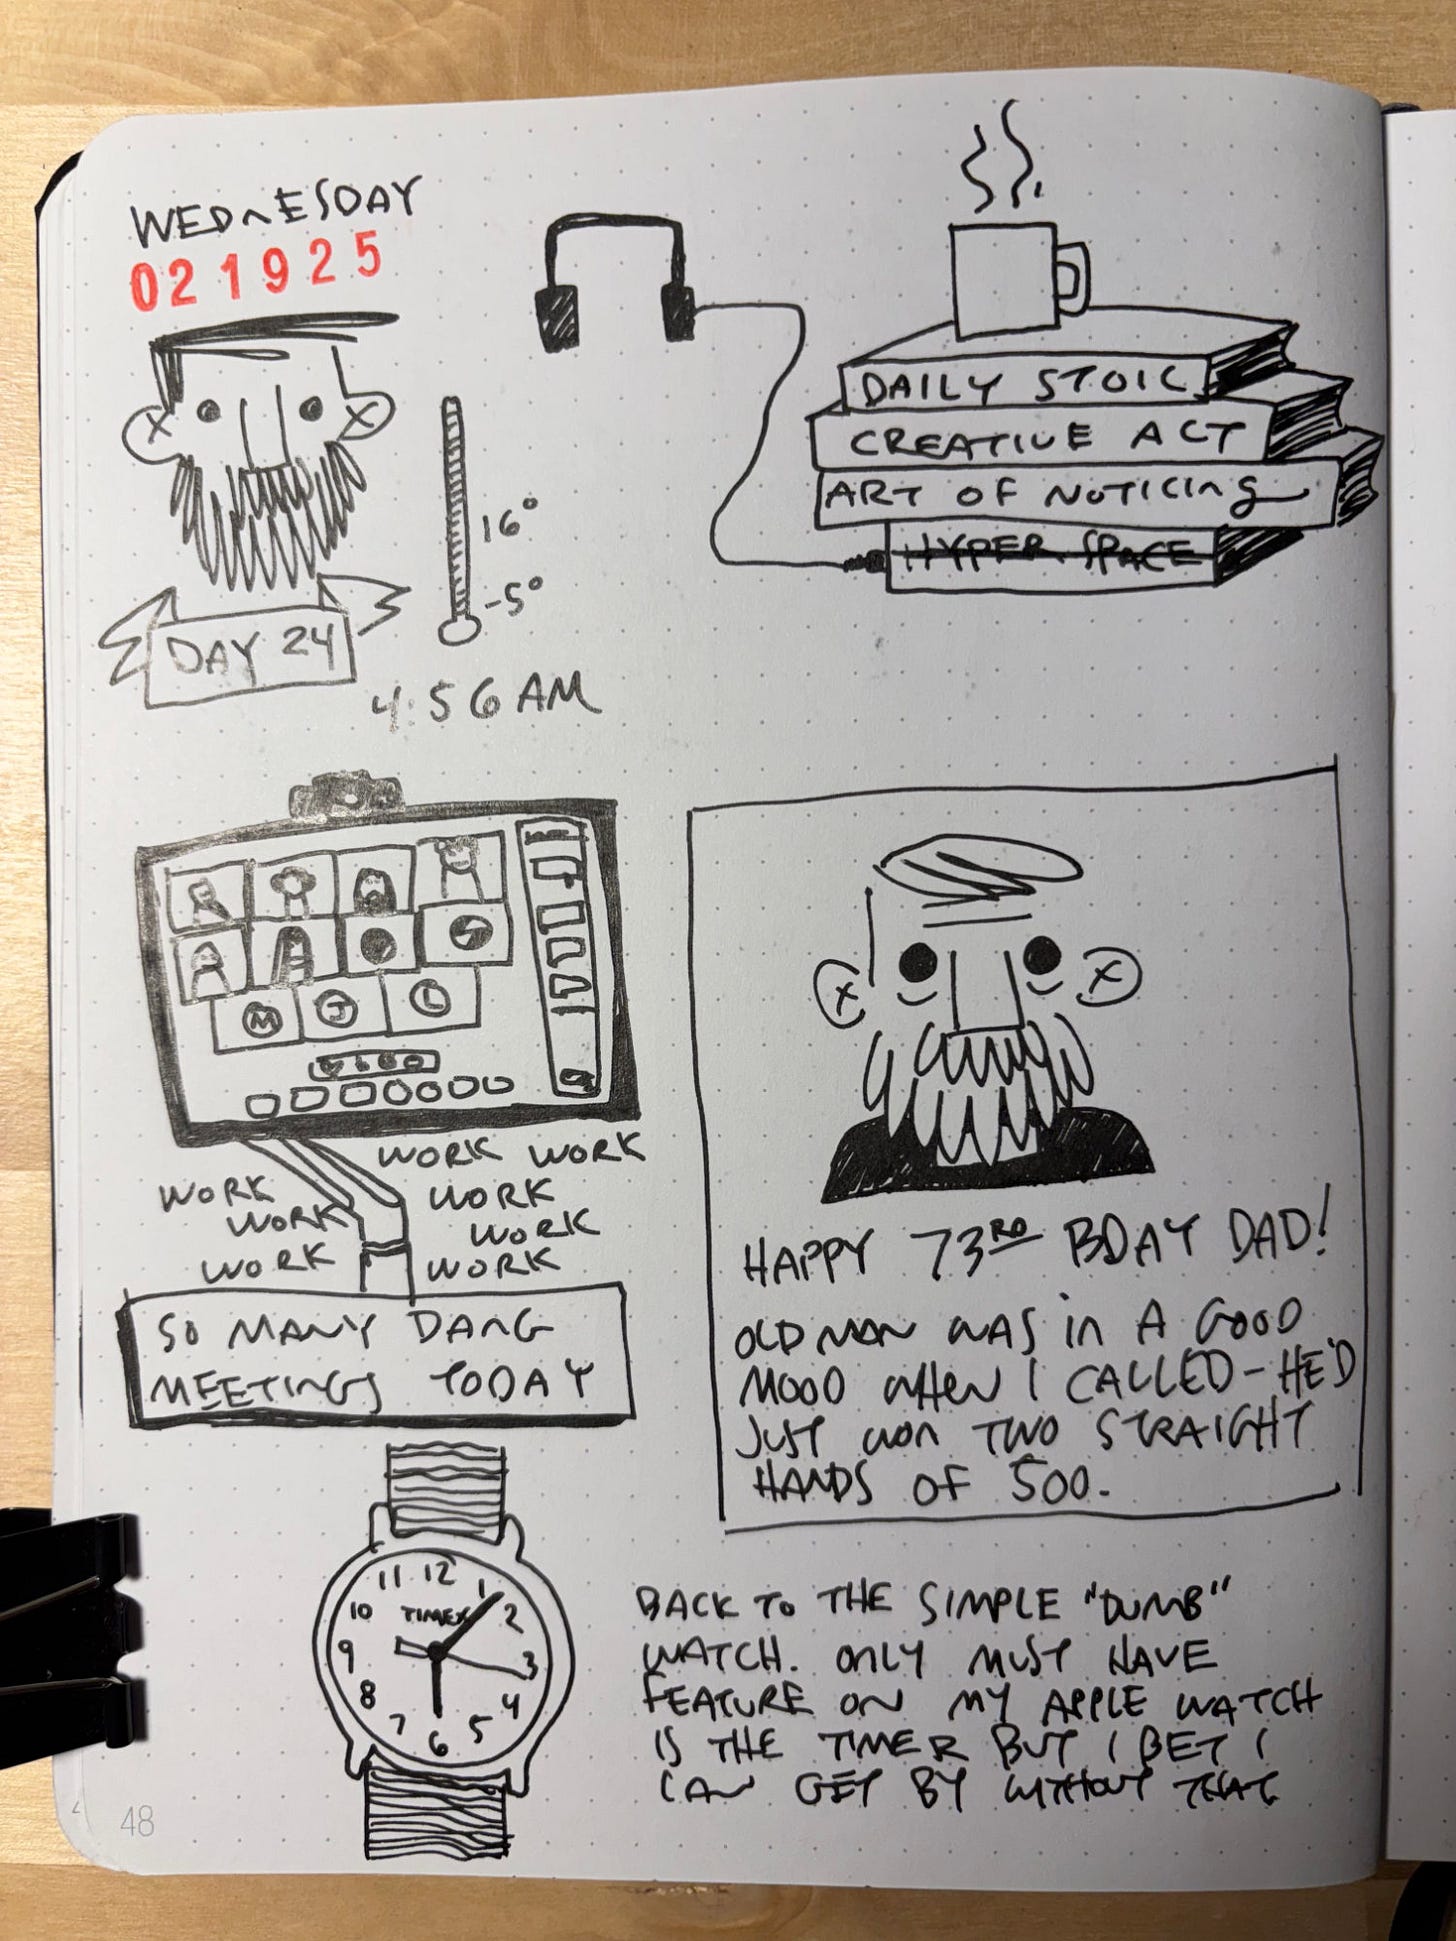 WEDNESDAY
021925
16°
-5°
DAY 24
4:56 AM
DAILY STOIC
CREATIVE ACT
ART OF NOTICING
HYPER SPACE
M J L
WORK WORK
WORK WORK
WORK WORK
WORK WORK
SO MANY DANG
MEETINGS TODAY
HAPPY 73RD BDAY DAD!
OLD MAN WAS IN A GOOD
MOOD WHEN I CALLED - HE'D
JUST WON TWO STRAIGHT
HANDS OF 500.
11 12 1
10 TIMEX 2
9 3
8 4
7 6 5
BACK TO THE SIMPLE "DUMB"
WATCH. ONLY MUST HAVE
FEATURE ON MY APPLE WATCH
IS THE TIMER BUT I BET I
CAN GET BY WITHOUT THAT
48